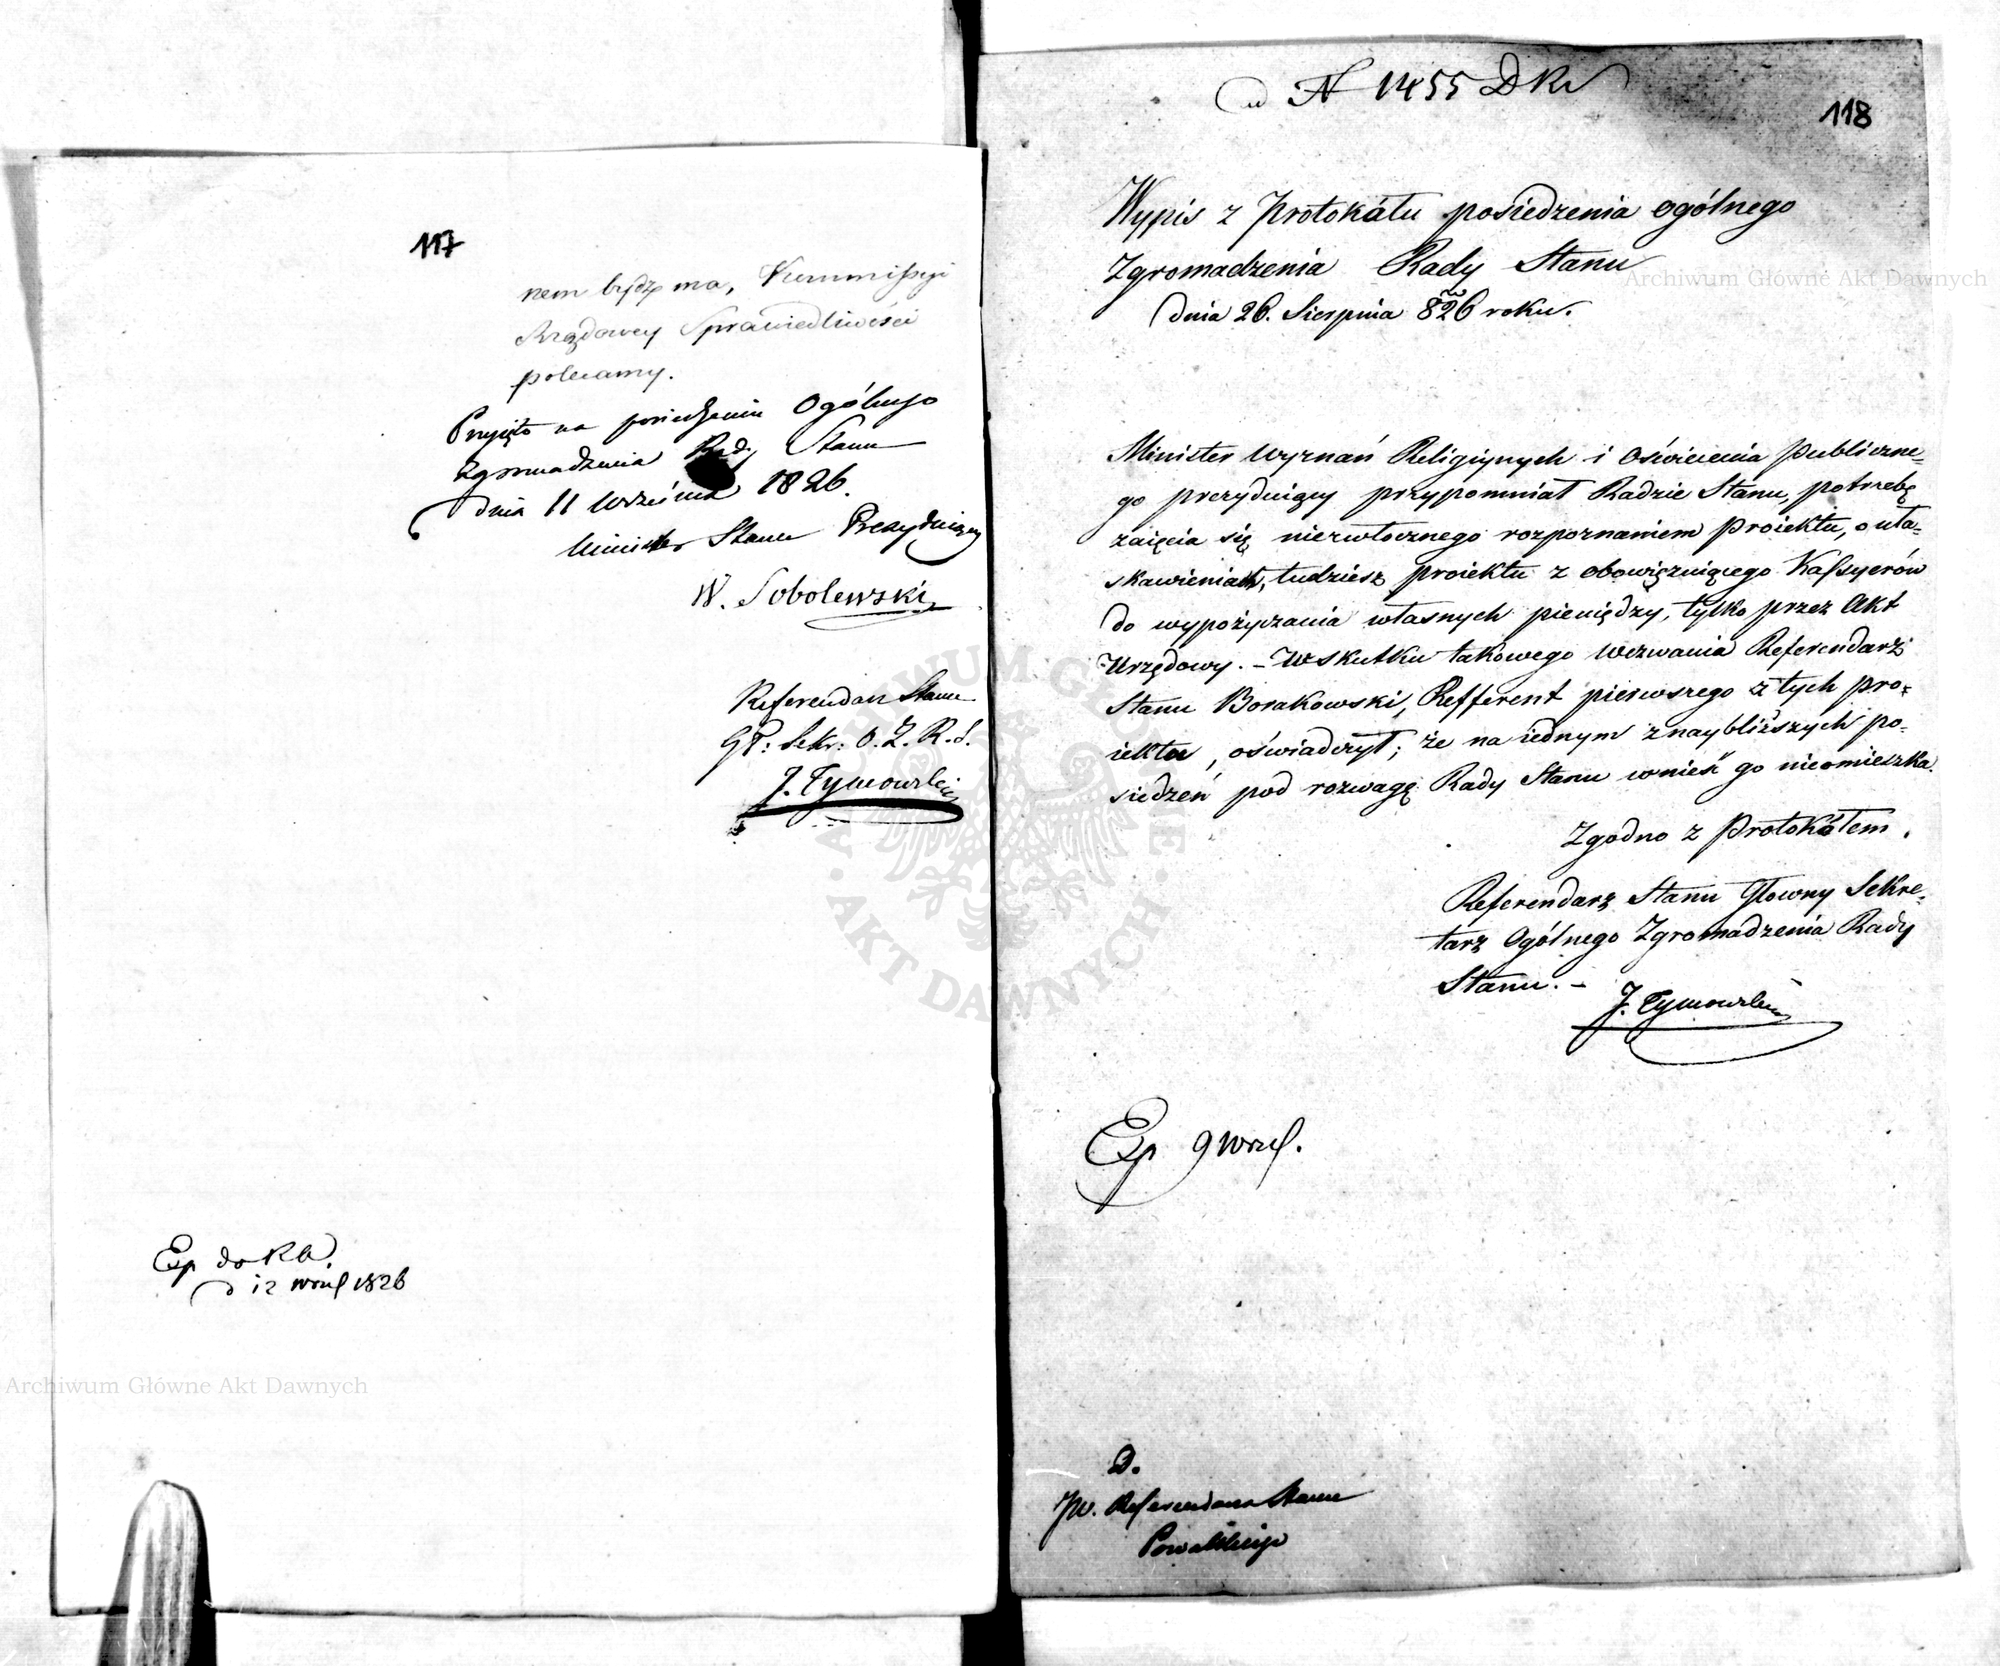 117
nem będzie ma, Kommissyi
Rządowey Sprawiedliwości
polecamy.
Przyjęto na posiedzeniu Ogólnego
Zgromadzenia Rady Stanu
dnia 11 Września 1826.
Minister Stanu Prezyduiący
W. Sobolewski
Referendarz Stanu
Gł: Sekr: O. Z. R. S.
J. Tymowski
Exp do
d 12 1826
Archiwum Główne Akt Dawnych
N 1455 D
118
Wypis z Protokółu posiedzenia ogólnego
Zgromadzenia Rady Stanu
Archiwum Główne Akt Dawnych
dnia 26. Sierpnia 826 roku.
Minister Wyznań Religiynych i Oświecenia Publiczne-
go prezyduiący przypomniał Radzie Stanu, potrzebę
zaięcia się niezwłocznego rozpoznaniem proiektu, o uła-
skawieniach, tudzież proiektu z obowięzuiącego Kassyerów
do wypożyczania własnych pieniędzy, tylko przez Akt
Urzędowy. – W skutku takowego wezwania Referendarz
Stanu Borakowski, Refferent pierwszego z tych pro-
iektu, oświadczył; że na iednym z naybliższych po-
siedzeń pod rozwagę Rady Stanu wnieść go nieomieszka.
Zgodno z Protokółem.
Referendarz Stanu Głowny Sekre-
tarz Ogólnego Zgromadzenia Rady
Stanu. –
J. Tymowski
ARCHIWUM GŁÓWNE AKT DAWNYCH
Exp 9
D.
JW. Referendarza Stanu